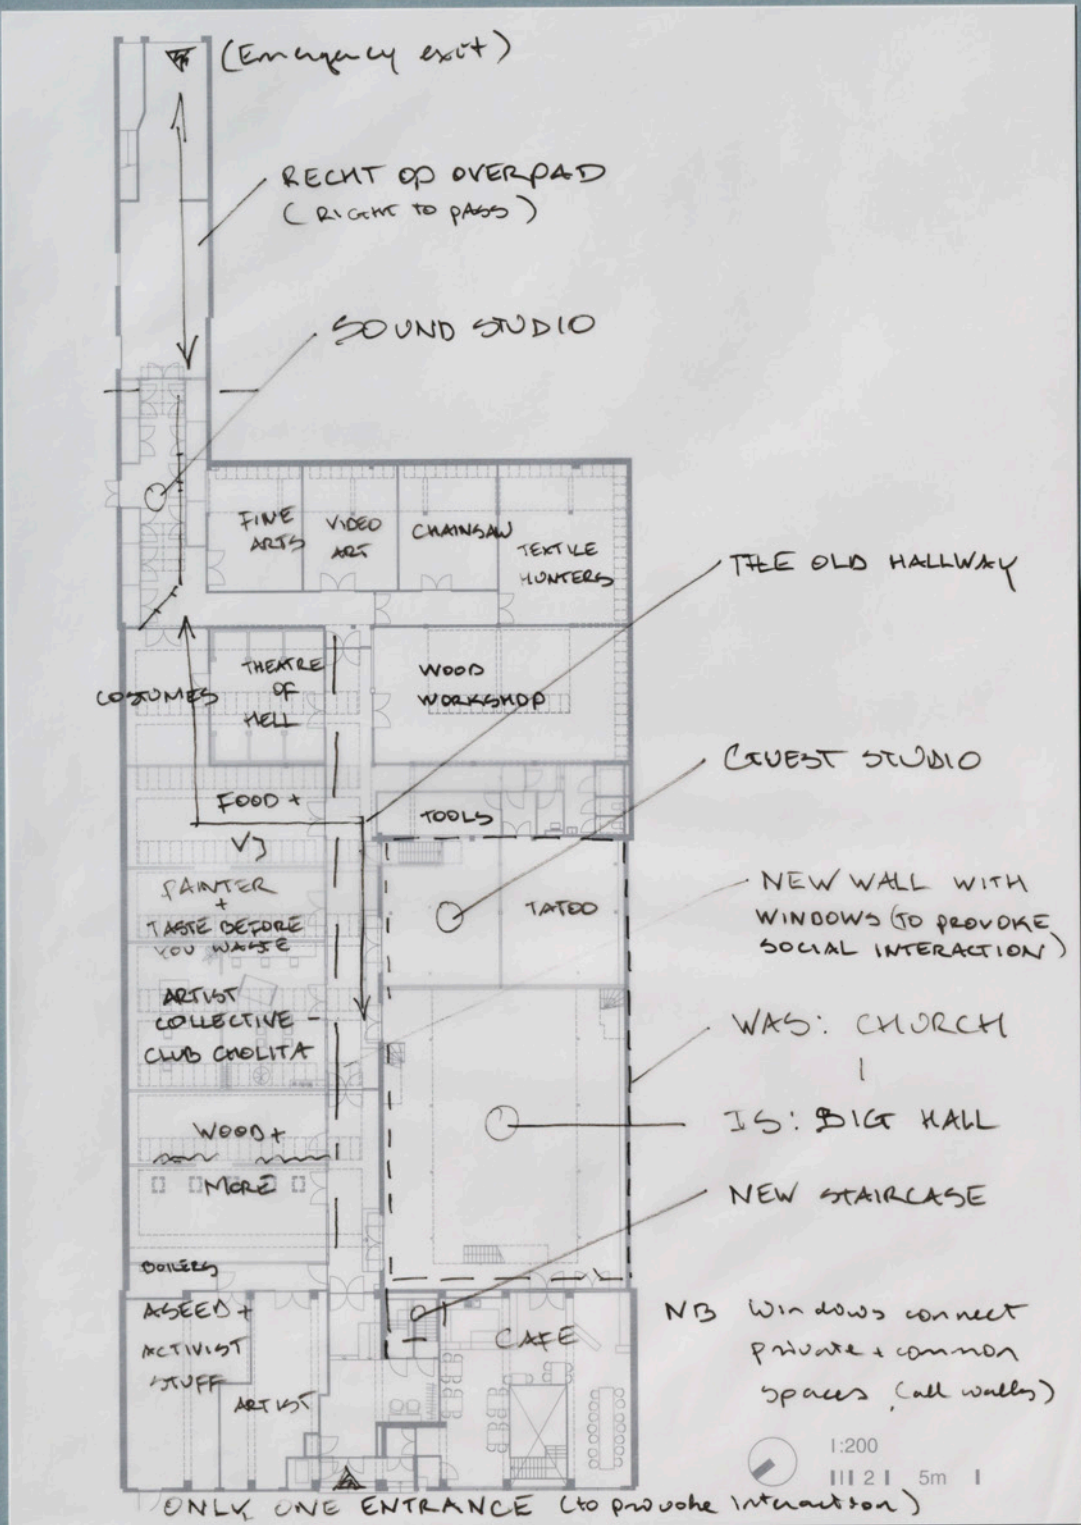 (Emergency exit)
RECHT OP OVERPAD
(RIGHT TO PASS)
SOUND STUDIO
FINE
ARTS
VIDEO
ART
CHAINSAW
TEXTILE
HUNTERS
THE OLD HALLWAY
COSTUMES
THEATRE
OF
HELL
WOOD
WORKSHOP
GUEST STUDIO
FOOD +
VJ
TOOLS
PAINTER
+
TASTE BEFORE
YOU WASTE
TATOO
NEW WALL WITH
WINDOWS (TO PROVOKE
SOCIAL INTERACTION)
ARTIST
COLLECTIVE -
CLUB CHOLITA
WAS: CHURCH
IS: BIG HALL
WOOD +
MORE
NEW STAIRCASE
BOILERS
ASEED +
ACTIVIST
STUFF
ARTIST
CAFE
NB Windows connect
private + common
spaces (all walls)
1:200
1 2 5m
ONLY ONE ENTRANCE (to provoke interaction)